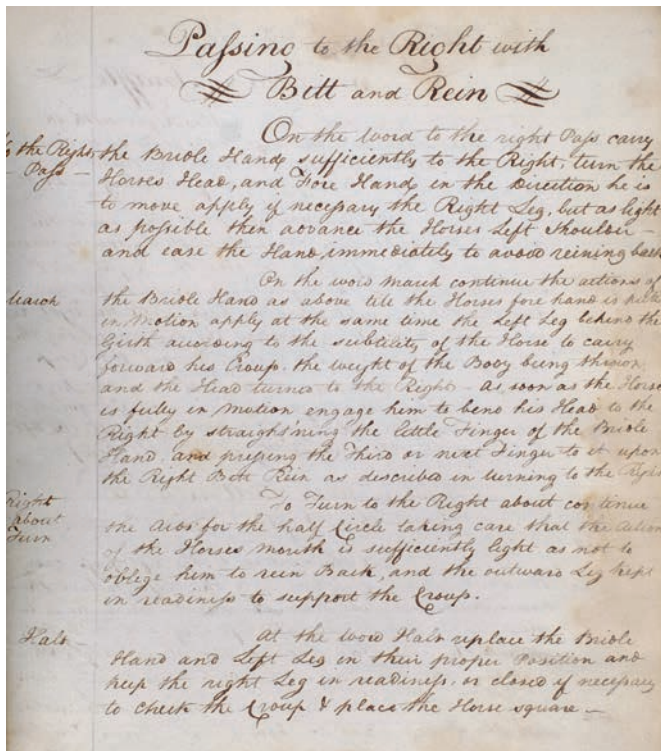 Paſsing to the Right with
Bitt and Rein
On the word to the right Paſs carry
To the Right
Paſs —
the Bridle Hand, sufficiently to the Right, turn the
Horses Head, and Fore Hand, in the Direction he is
to move apply if neceſsary the Right Leg, but as light
as poſsible then advance the Horses Left Shoulder —
and ease the Hand, immediately to avoid reining back
On the word March continue the actions of
March
the Bridle Hand as above till the Horses fore hand is putt
in Motion apply at the same time the Left Leg behind the
Girth according to the subtility of the Horse to carry
forward his Croup. the weight of the Body being thrown
and the Head turned to the Right — As soon as the Horse
is fully in Motion engage him to bend his Head to the
Right by straight'ning the little Finger of the Bridle
Hand and preſsing the Third or next Finger to it upon
the Right Bitt Rein as described in turning to the Right
Right
about
Turn
To Turn to the Right about continue
the Aids for the half Circle taking care that the Action
of the Horses mouth is sufficiently light as not to
oblege him to rein Back, and the outward Leg kept
in readineſs to support the Croup.
Halt
At the word Halt replace the Bridle
Hand and Left Leg in their proper Position and
keep the right Leg in readineſs, or closed if neceſsary
to check the Croup & place the Horse square —